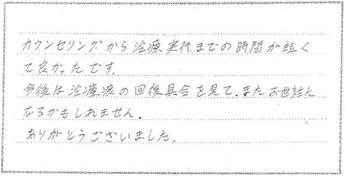 カウンセリングから治療実行までの時間が短く
て良かったです。
今後は治療液の回復具合を見て、またお世話に
なるかもしれません。
ありがとうございました。